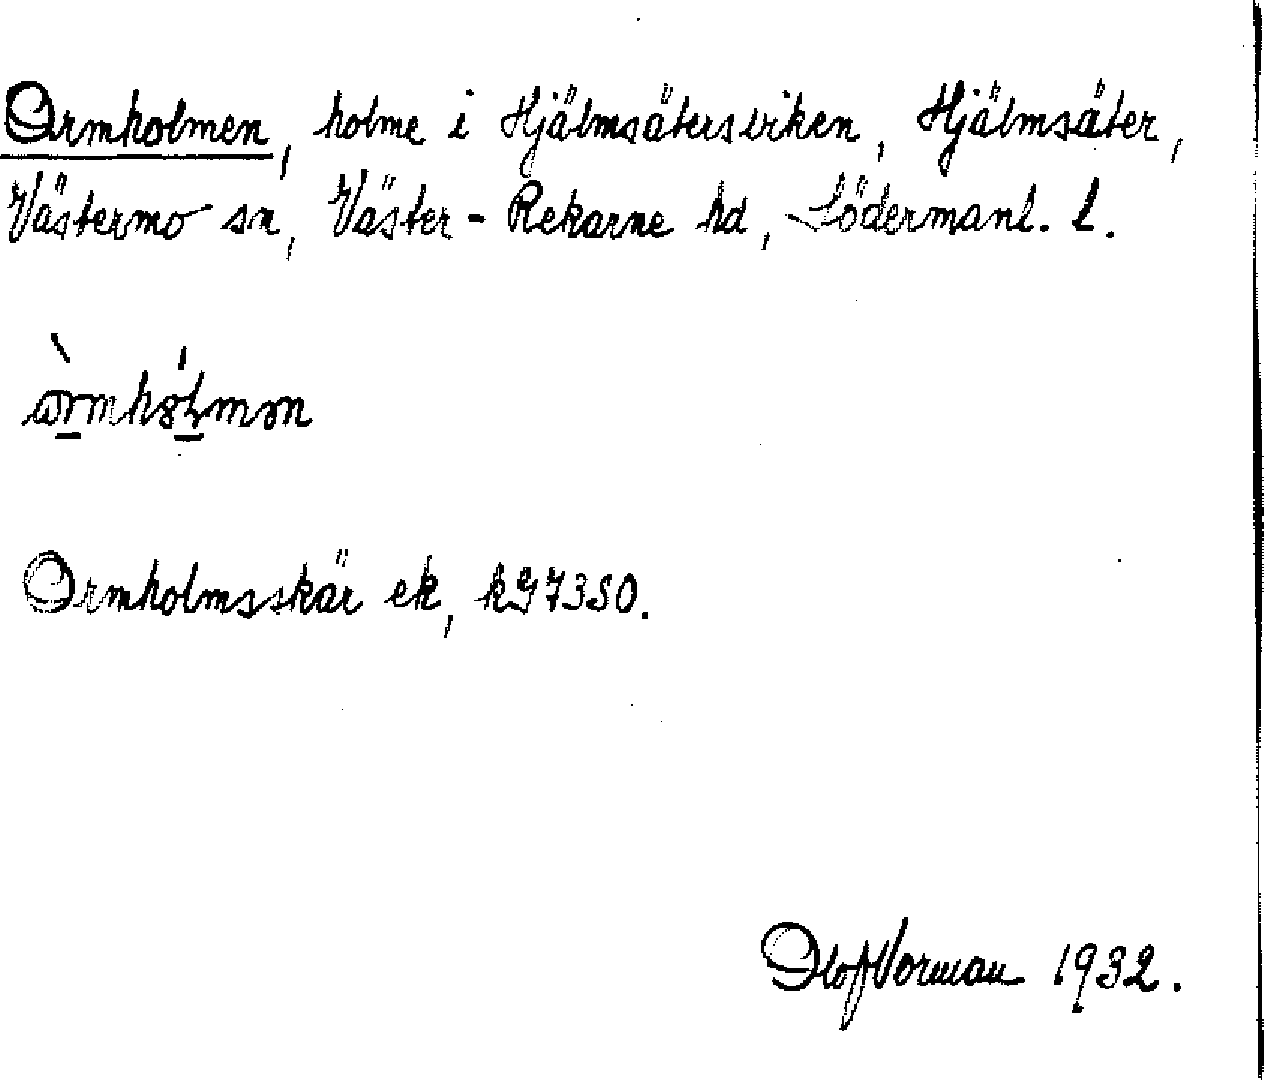 Ormholmen, holme i Hjälmsätersviken, Hjälmsäter,
Västermo sn, Väster-Rekarne hd, Södermanl. l.
Ormholmsskär ek, k97350.
Olof Norman 1932.